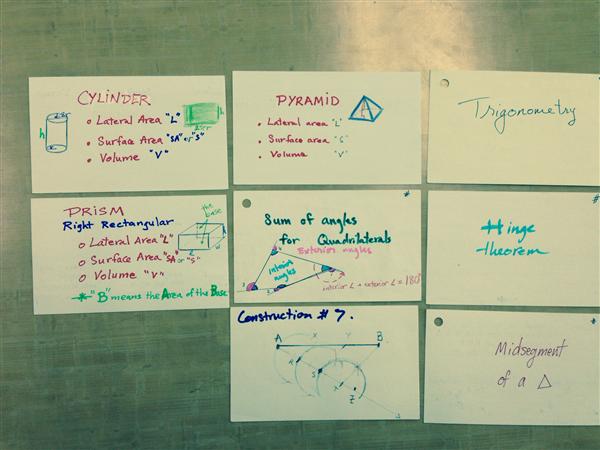 CYLINDER
Lateral Area "L"
Surface Area "SA" or "S"
Volume "V"
h
h
PYRAMID
Lateral area "L"
Surface area "S"
Volume "V"
Trigonometry
PRISM
Right Rectangular
the base
Lateral Area "L"
Surface Area "SA" or "S"
Volume "V"
* "B" means the Area of the Base
Sum of angles
for Quadrilaterals
Exterior angles
Interior angles
interior ∠ + exterior ∠ = 180°
Hinge
theorem
Construction # 7.
A X Y B
Z
Midsegment
of a △